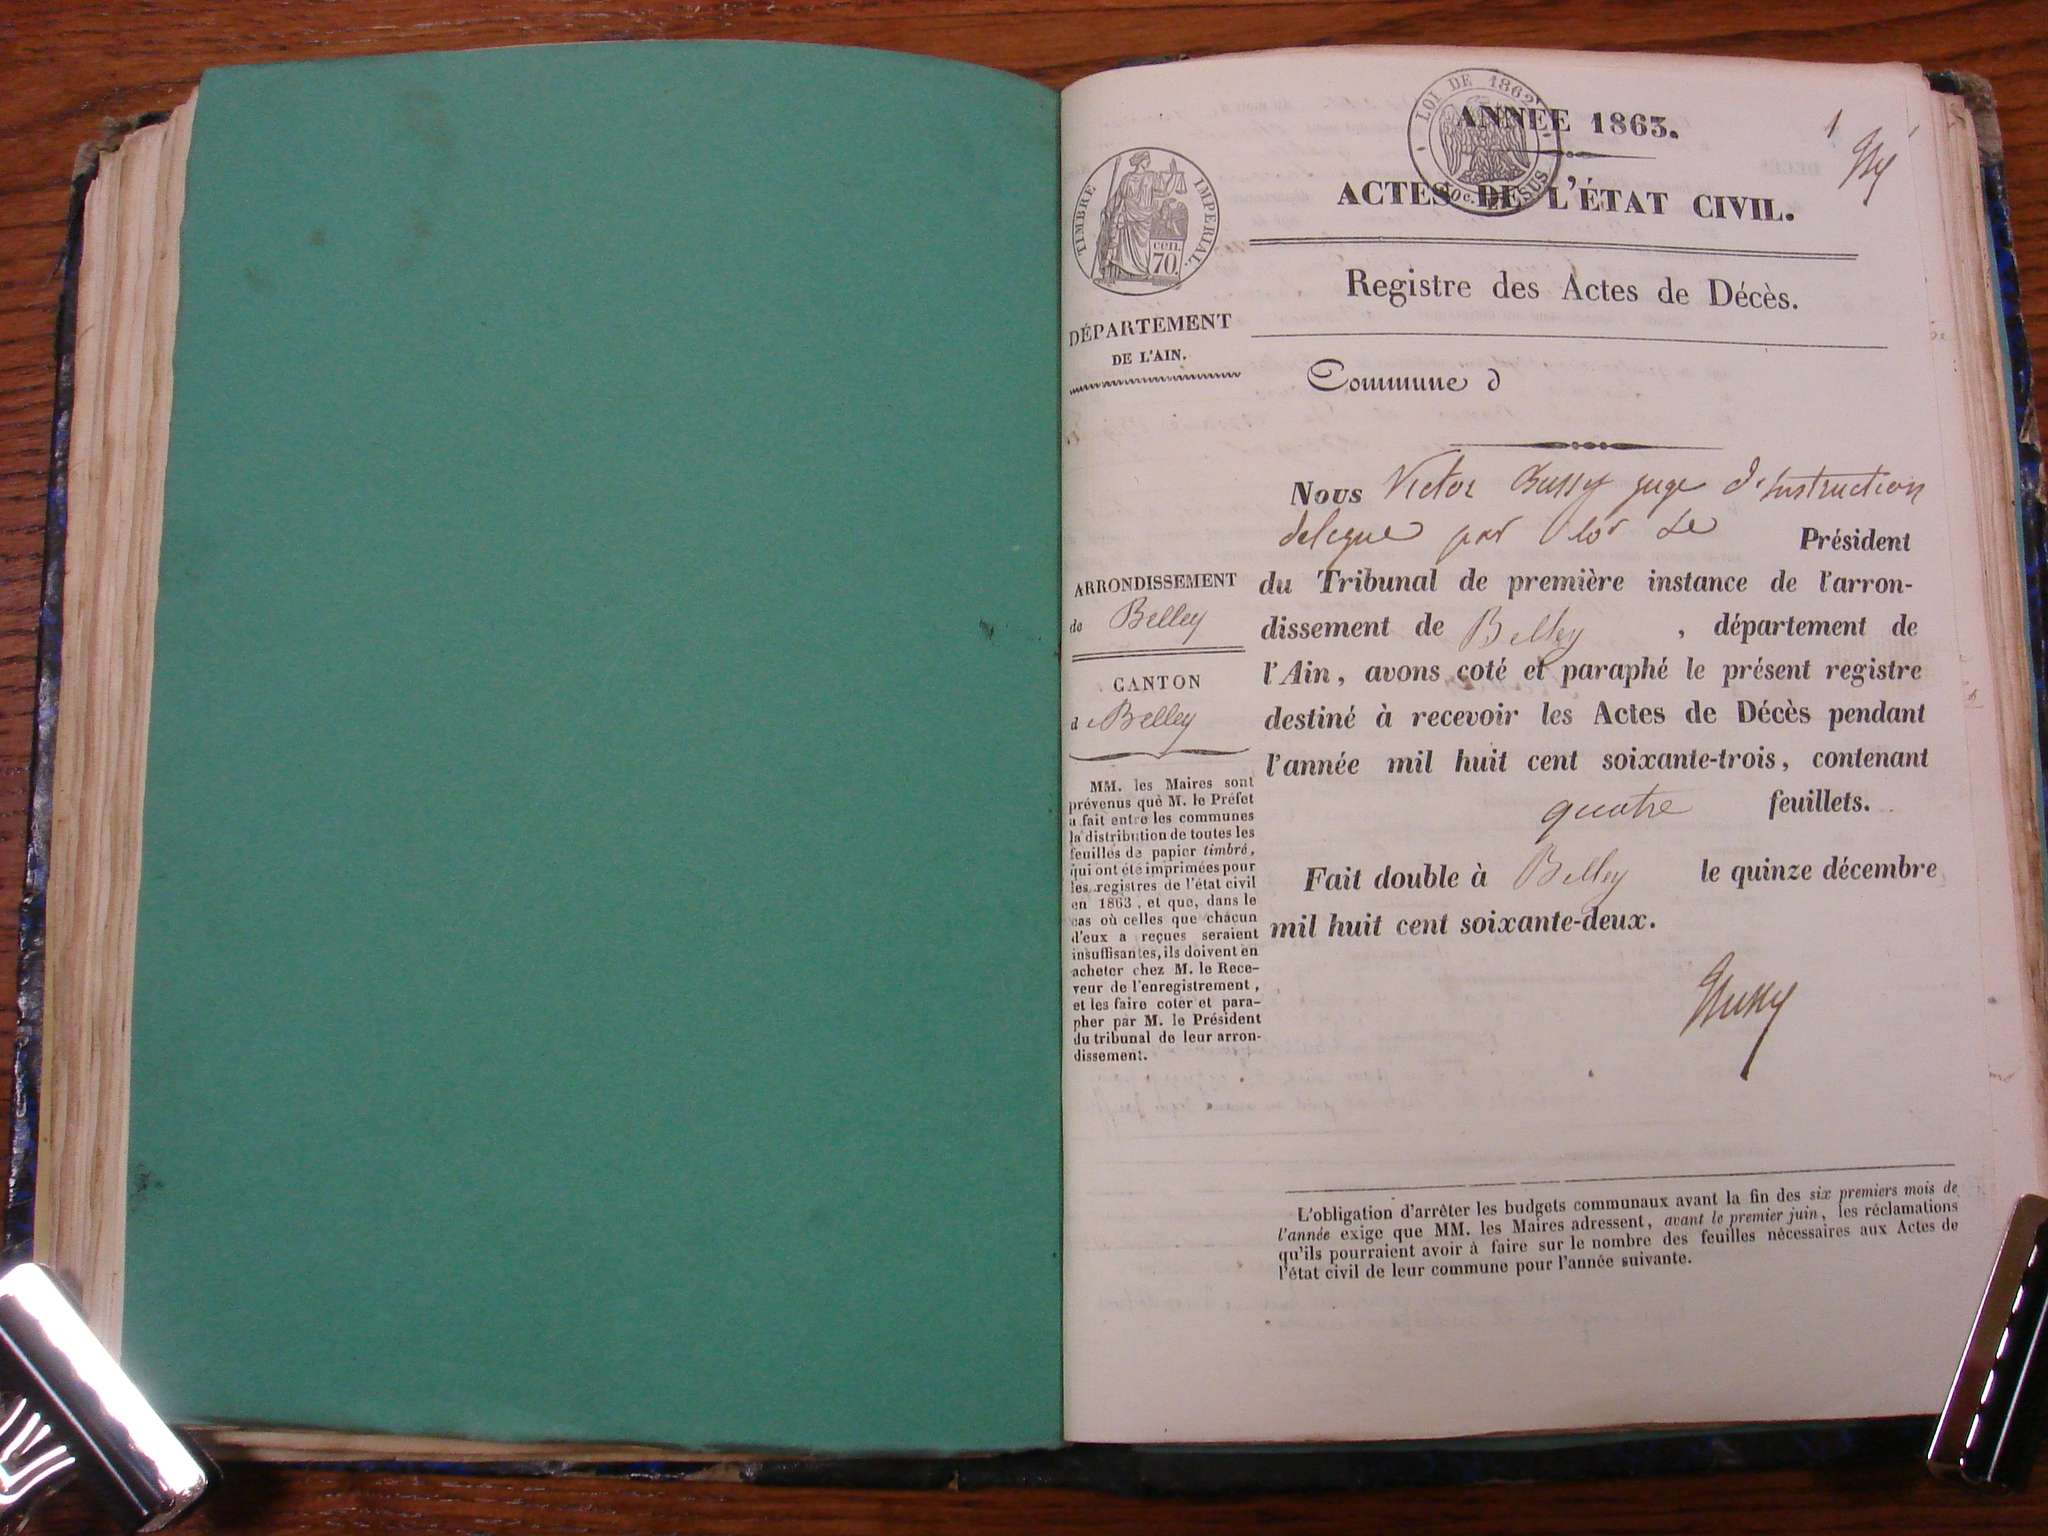 LOI DE 1862
ANNEE 1863.
1
2 Oc. EN SUS
TIMBRE IMPERIAL.
cen.
70.
ACTES DE L'ÉTAT CIVIL.
Registre des Actes de Décès.
DÉPARTEMENT
DE L'AIN.
Commune d
ARRONDISSEMENT
de Belley
CANTON
d e Belley
MM. les Maires sont
prévenus què M. le Préfet
a fait entre les communes
la distribution de toutes les
feuilles de papier timbré,
qui ont été imprimées pour
les registres de l'état civil
en 1863, et que, dans le
cas où celles que chacun
d'eux a reçues seraient
insuffisantes, ils doivent en
acheter chez M. le Rece-
veur de l'enregistrement,
et les faire coter et para-
pher par M. le Président
du tribunal de leur arron-
dissement.
Nous Victor Bussy juge d'instruction
delegue par le Président
du Tribunal de première instance de l'arron-
dissement de Belley, département de
l'Ain, avons coté et paraphé le présent registre
destiné à recevoir les Actes de Décès pendant
l'année mil huit cent soixante-trois, contenant
quatre feuillets.
Fait double à Belley le quinze décembre
mil huit cent soixante-deux.
Bussy
L'obligation d'arrêter les budgets communaux avant la fin des six premiers mois de
l'année exige que MM. les Maires adressent, avant le premier juin, les réclamations
qu'ils pourraient avoir à faire sur le nombre des feuilles nécessaires aux Actes de
l'état civil de leur commune pour l'année suivante.